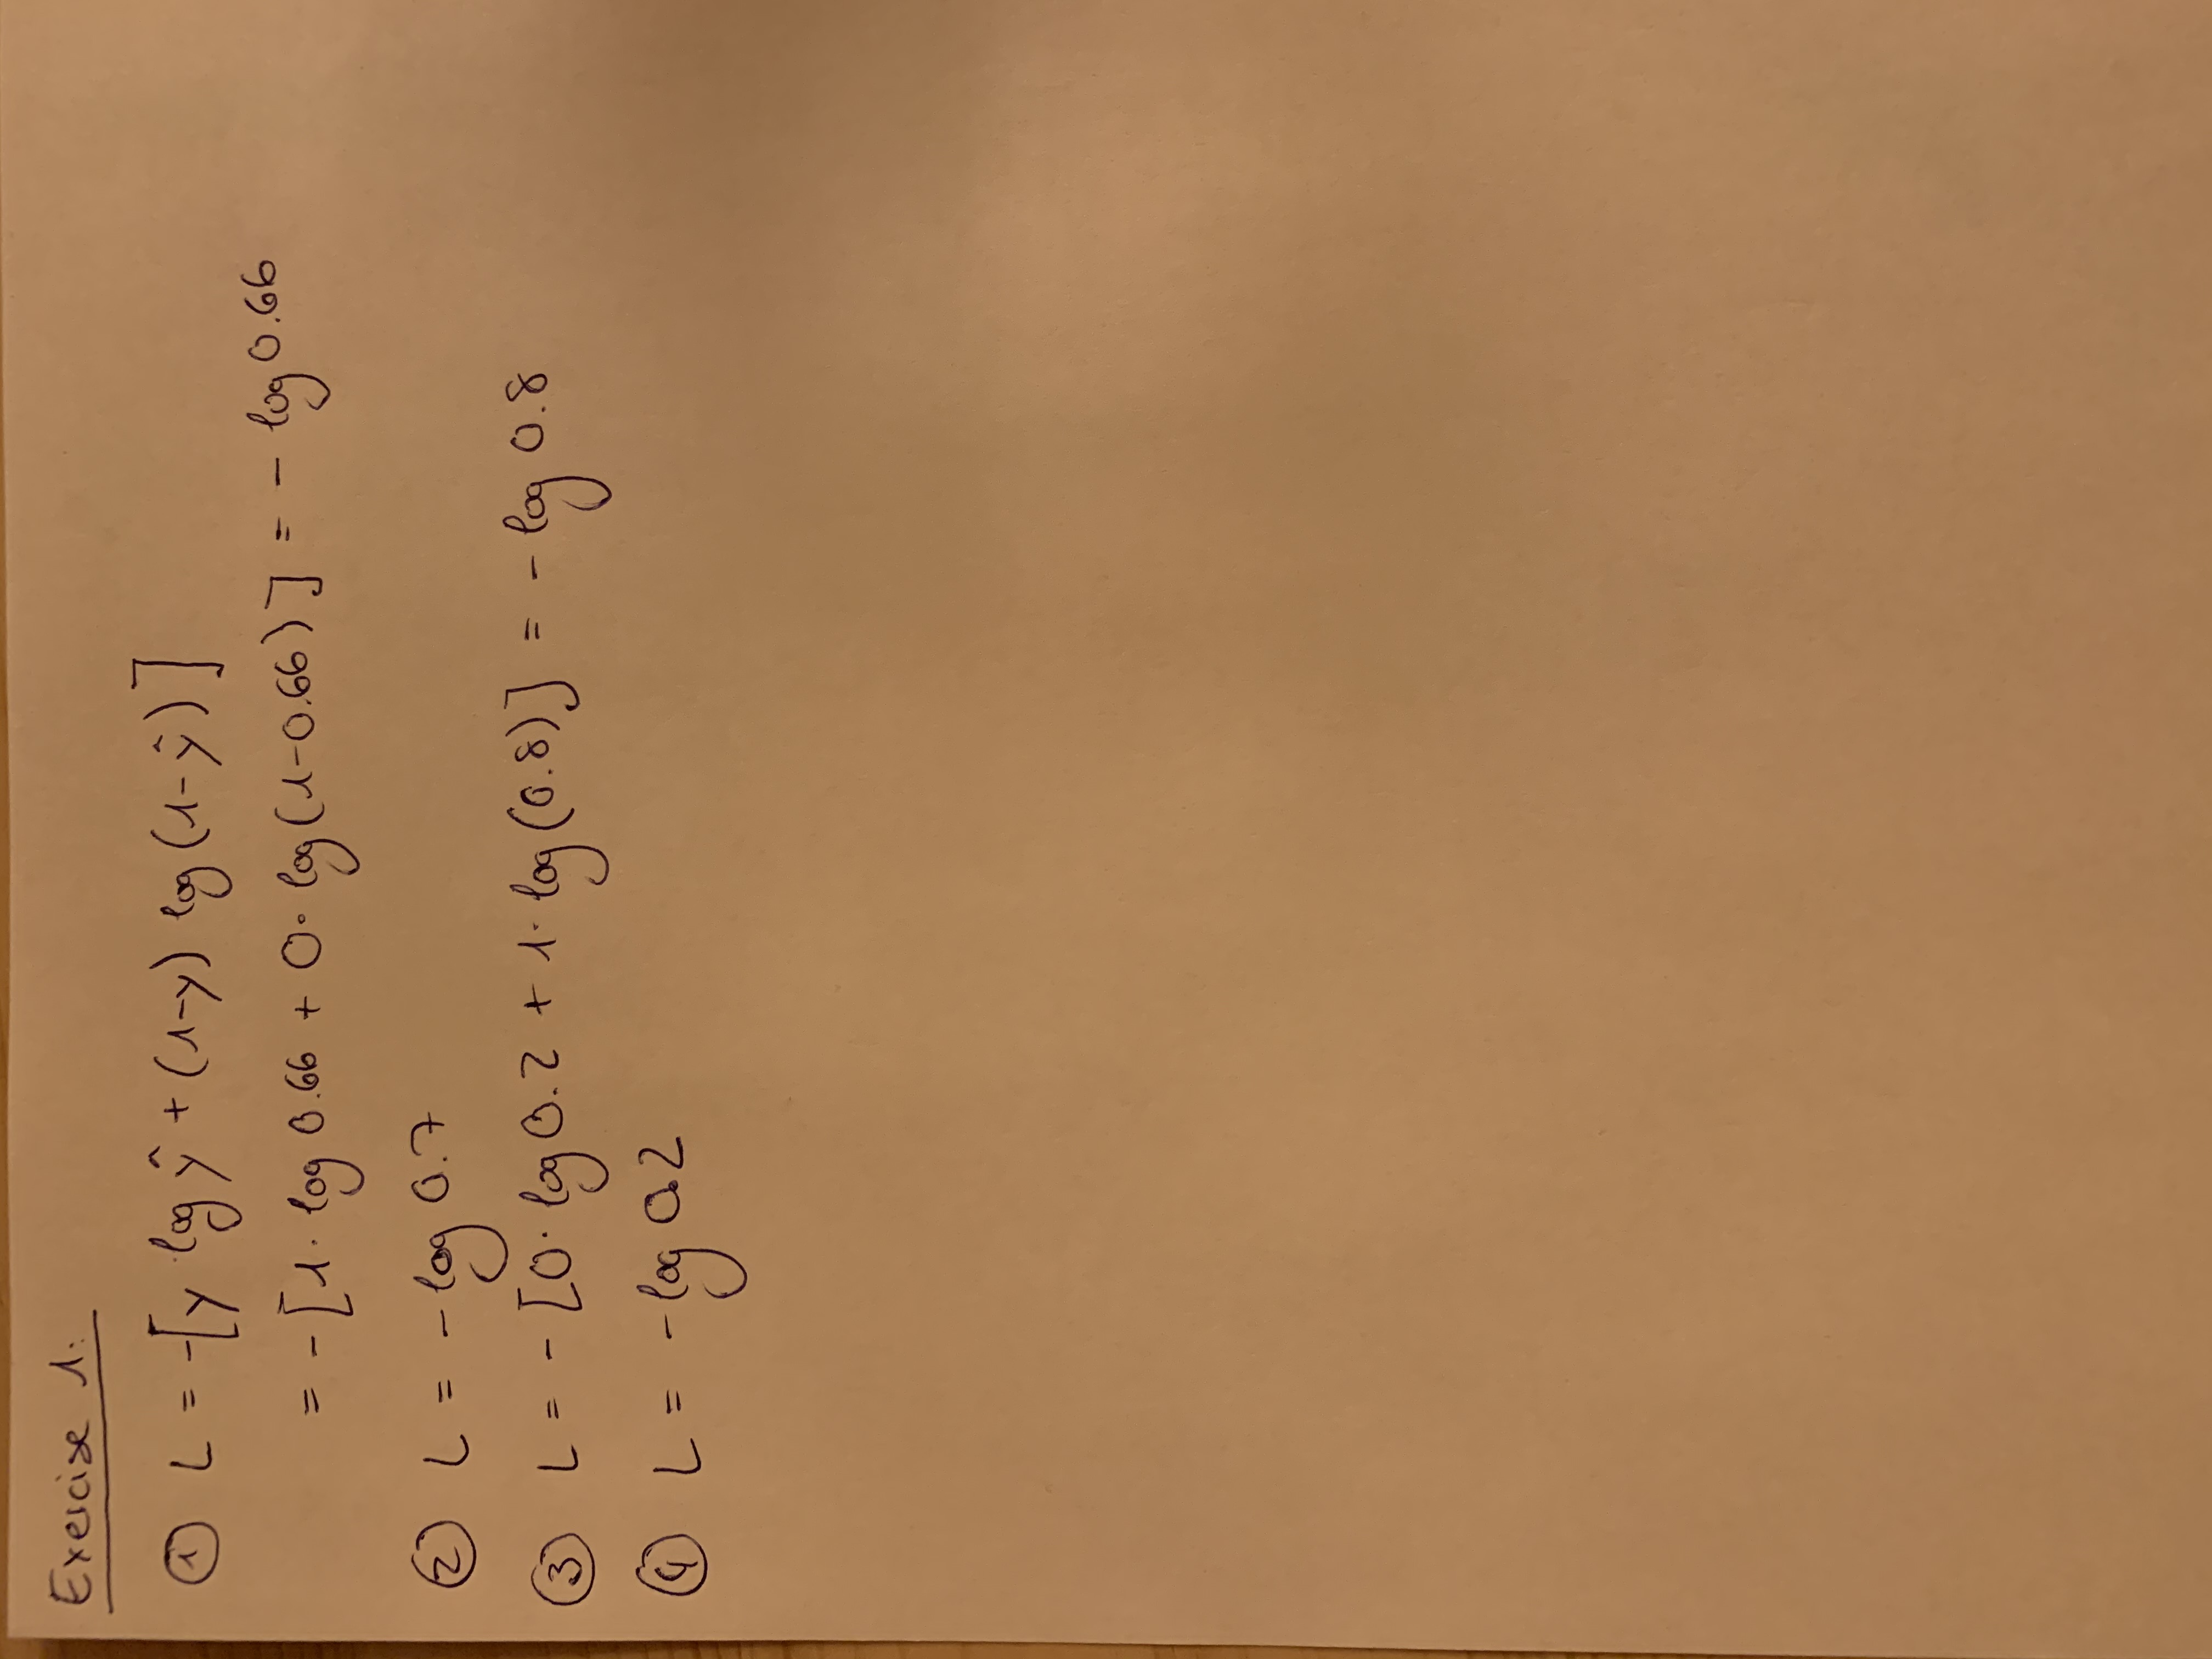 Exercise 1:
① L = -[y log ŷ + (1-y) log (1-ŷ)]
= -[1· log 0.66 + 0· log(1-0.66)] = - log 0.66
② L = -log 0.7
③ L = -[0· log 0.2 + 1· log(0.8)] = -log 0.8
④ L = -log 0.2